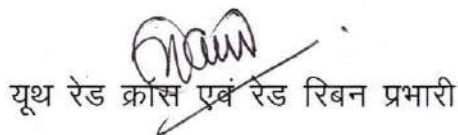 यूथ रेड क्रॉस एवं रेड रिबन प्रभारी